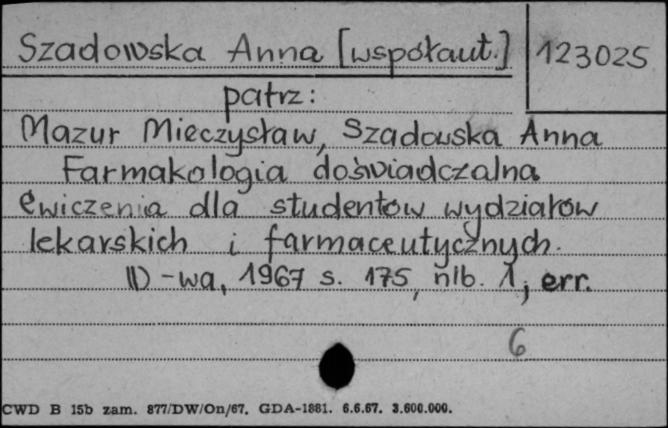 Szadowska Anna [współaut.] 123025
patrz:
Mazur Mieczysław, Szadowska Anna
Farmakologia doświadczalna
Ćwiczenia dla studentów wydziałów
lekarskich i farmaceutycznych.
W-wa, 1967 s. 175, nlb. 1, err.
6
CWD B 15b zam. 877/DW/On/67. GDA-1881. 6.6.67. 3.600.000.